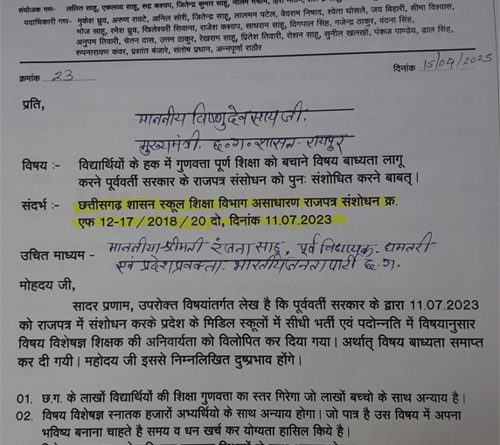 संयोजक गण- ललित साहू, एकलव्य साहू, रुद्र कश्यप, जितेन्द्र कुमार साहू,
पदाधिकारी गण- मुकेश ध्रुव, अरूण रावटे, अनिल सोरी, जितेन्द्र साहू, लालमन पटेल, वेदराम निषाद, श्वेता घोसले, जय बिहारी, सीमा विश्वास,
भोज साहू, रमेश ध्रुव, खिलेश्वरी सिवाना, राजेश कश्यप, साधराम साहू, दिगपाल सिंह, गजेन्द्र ठाकुर, वंदना सिंह,
अनुपम तिवारी, चेतन दास, उत्तम ठाकुर, रेखराम साहू, प्रितेश तिवारी, रोशन साहू, सुनील खलखो, पंकज पाण्डेय, ढाल सिंह,
रूपनारायण कंवर, प्रशांत बंजारे, संतोष प्रधान, अन्नपूर्णा राठौर
क्रमांक 23 दिनांक 15/04/2025
प्रति,
माननीय विष्णुदेव साय जी.
मुख्यमंत्री. छ.ग. शासन- रायपुर
विषय :- विद्यार्थियों के हक में गुणवत्ता पूर्ण शिक्षा को बचाने विषय बाध्यता लागू
करने पूर्ववर्ती सरकार के राजपत्र संसोधन को पुनः संशोधित करने बाबत्।
संदर्भ :- छत्तीसगढ़ शासन स्कूल शिक्षा विभाग असाधारण राजपत्र संशोधन क्र.
एफ 12-17/2018/20 दो, दिनांक 11.07.2023
उचित माध्यम - माननीया श्रीमती रंजना साहू, पूर्व विधायक- धमतरी
एवं प्रदेश प्रवक्ता- भारतीय जनता पार्टी छ.ग.
मोहदय जी,
सादर प्रणाम, उपरोक्त विषयांतर्गत लेख है कि पूर्ववर्ती सरकार के द्वारा 11.07.2023
को राजपत्र में संशोधन करके प्रदेश के मिडिल स्कूलों में सीधी भर्ती एवं पदोन्नति में विषयानुसार
विषय विशेषज्ञ शिक्षक की अनिवार्यता को विलोपित कर दिया गया। अर्थात् विषय बाध्यता समाप्त
कर दी गयी। महोदय जी इससे निम्नलिखित दुष्प्रभाव होंगे।
01. छ.ग. के लाखों विद्यार्थियों की शिक्षा गुणवत्ता का स्तर गिरेगा जो लाखों बच्चो के साथ अन्याय है।
02. विषय विशेषज्ञ स्नातक हजारों अभ्यर्थियो के साथ अन्याय होगा। जो पात्र है उस विषय में अपना
भविष्य बनाना चाहते है समय व धन खर्च कर योग्यता हासिल किये है।